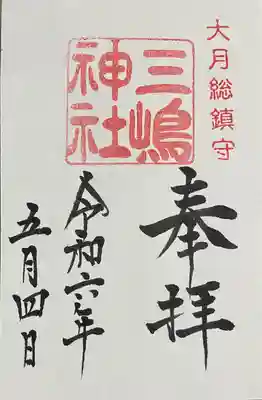 大月総鎮守
三嶋神社
奉拝
令和六年
五月四日